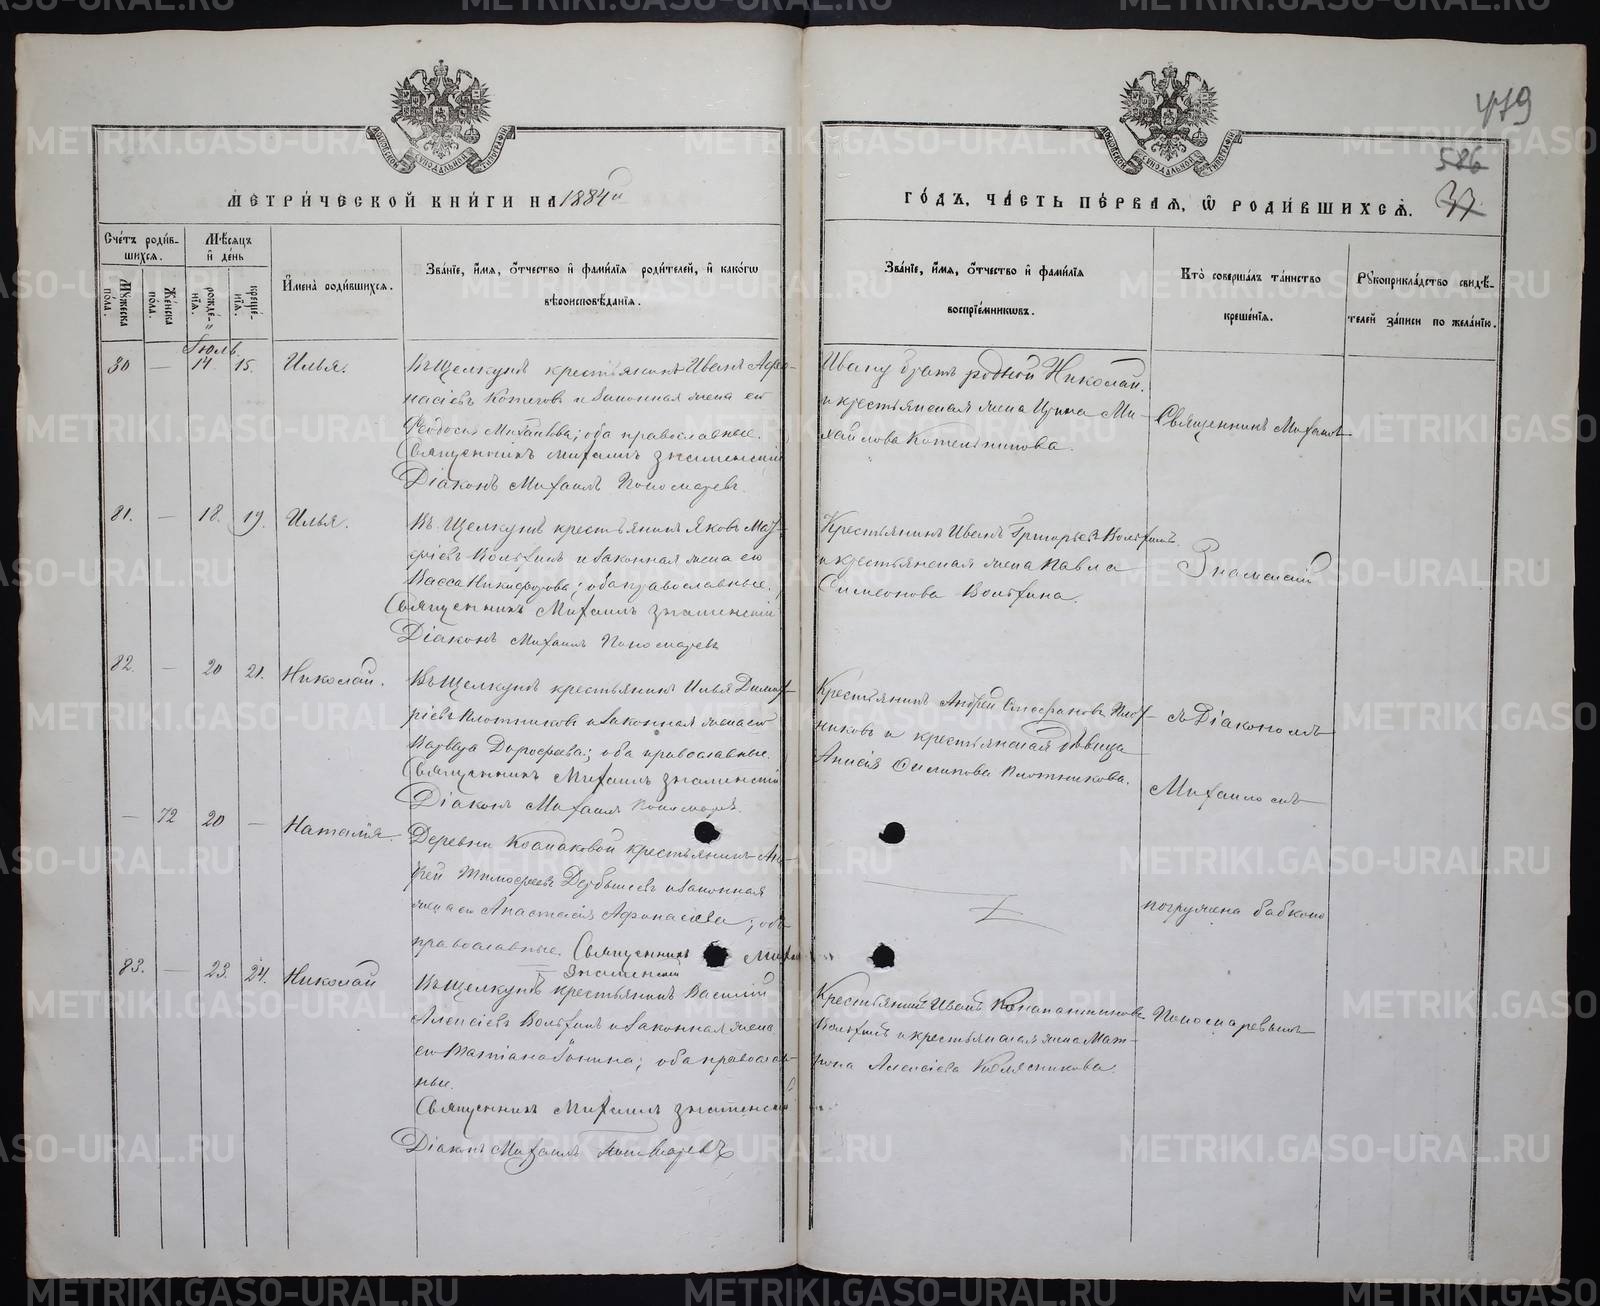 479
586
37
МЕТРИ́ЧЕСКОЙ КНИ́ГИ НА 1884й
ГО́ДЪ, ЧА́СТЬ ПЕ́РВАЯ, Ѡ҆ РОДИ́ВШИХСѦ.
Сче́тъ роди́в-
шихсѧ.
Мѣ́сяцъ
и҆ де́нь
Мꙋ́жеска
по́ла.
Же́нска
по́ла.
рожде́-
нїѧ.
креще́-
нїѧ.
И҆мена̀ роди́вшихсѧ.
Зва́нїе, и҆́мѧ, ѻ҆́тчество и҆ фами́лїѧ роди́телей, и҆ како́гѡ
вѣроисповѣ́данїѧ.
Зва́нїе, и҆́мѧ, ѻ҆́тчество и҆ фами́лїѧ
воспрїе́мникѡвъ.
Кто̀ соверша́лъ та́инство
креще́нїѧ.
Рꙋкоприкла́дство свидѣ́-
телей за́писи по жела́нїю.
Іюль
80 — 14. 15. Илья.
Въ Щелкунѣ крестьянинъ Иванъ Афа-
насіевъ и законная жена его
Ѳеодосья Михаилова; оба православные.
Священникъ Михаилъ Знаменскій
Діаконъ Михаилъ Пономаревъ.
Ивану братъ родной Николай
и крестьянская жена Ирина Ми-
хайлова Котельникова.
Священникъ Михаилъ
81. — 18. 19. Илья.
Въ Щелкунѣ крестьянинъ Яковъ Мат-
ѳіевъ и законная жена его
Васса Никифорова; оба православные.
Священникъ Михаилъ Знаменскій
Діаконъ Михаилъ Пономаревъ
Крестьянинъ Иванъ Григорьевъ
и крестьянская жена Павла
Симеонова
Знаменскій
82. — 20 21. Николай.
Въ Щелкунѣ крестьянинъ Илья Димит-
ріевъ Плотниковъ и законная жена его
Варвара Дороѳеева; оба православные.
Священникъ Михаилъ Знаменскій
Діаконъ Михаилъ Пономаревъ
Крестьянинъ Андрей Стефановъ Плот-
никовъ и крестьянская дѣвица
Анисія Филипова Плотникова.
съ Діакономъ
Михаиломъ
— 72 20 — Наталія
Деревни Космаковой крестьянинъ Ан-
дрей Тимоѳеевъ Дербышевъ и законная
жена его Анастасія Афонасіева; оба
православные. Священникъ Михаилъ
Знаменскій
погружена бабкою
83. — 23. 24. Николай
Въ Щелкунѣ крестьянинъ Василій
Алексіевъ и законная жена
его Татіана Іонина; оба православ-
ные.
Священникъ Михаилъ Знаменскій
Діаконъ Михаилъ Пономаревъ
Крестьянинъ Иванъ
и крестьянская жена Мат-
рона Алексіева Колясникова.
Пономаревымъ
METRIKI.GASO-URAL.RU